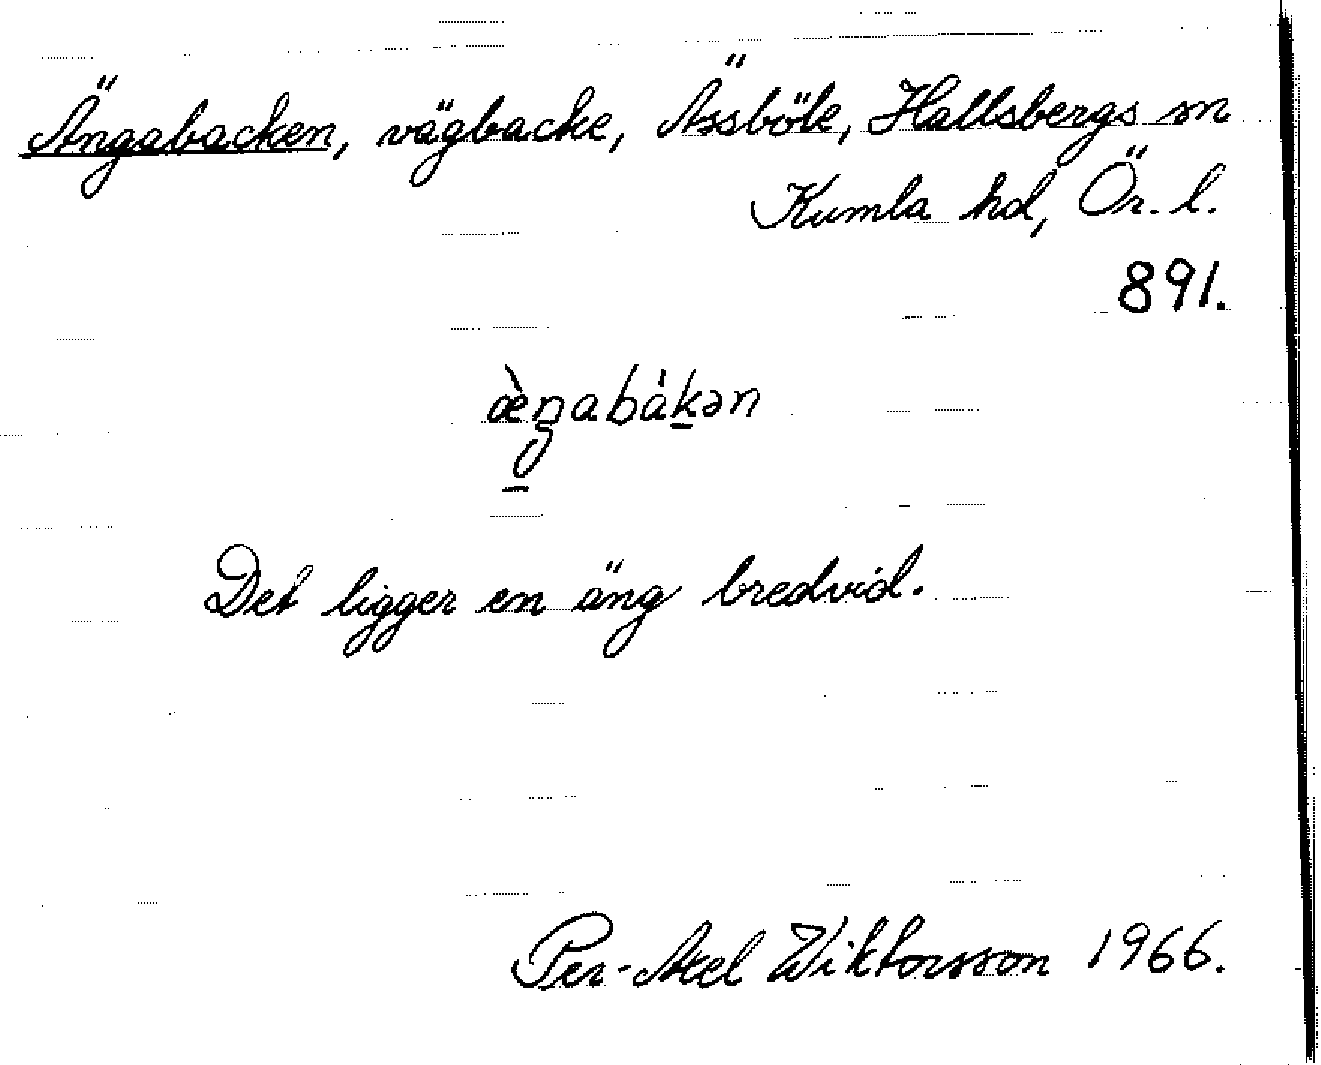 Ängabacken, vägbacke, Ässböle, Hallsbergs sn
Kumla hd, Ör. l.
891.
æ̀ŋabákən
Det ligger en äng bredvid.
Per-Axel Wiktorsson 1966.